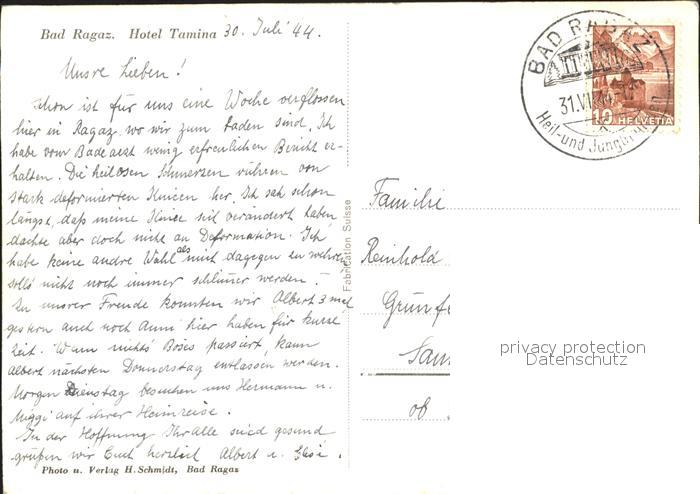 Bad Ragaz. Hotel Tamina 30. Juli 44.
Unsre Lieben!
Schon ist für uns eine Woche verflossen
hier in Ragaz wo wir zum baden sind. Ich
habe vom Badearzt wenig erfreulichen Bericht er-
halten. Die heillosen Schmerzen rühren von
stark deformierten Knieen her. Ich sah schon
längst, daß meine Kniee sich verändert haben,
dachte aber doch nicht an Deformation. Ich
habe keine andre Wahl als mich dagegen zu wehren
solls nicht noch immer schlimmer werden. -
Zu unsrer Freude konnten wir Albert 3 mal
gestern auch noch Anni hier haben für kurze
Zeit. Wenn nichts Böses passiert, kann
Albert nächsten Donnerstag entlassen werden.
Morgen Dienstag besuchen uns Hermann u.
Miggi auf ihrer Heimreise.
In der Hoffnung Ihr Alle seied gesund
grüßen wir Euch herzlich Albert u.
Photo u. Verlag H. Schmidt, Bad Ragaz
Fabrication Suisse
BAD RAGAZ
31.VII.44
Heil- und
10 HELVETIA
Familie
Reinhold
Grünf
ob
privacy protection
Datenschutz